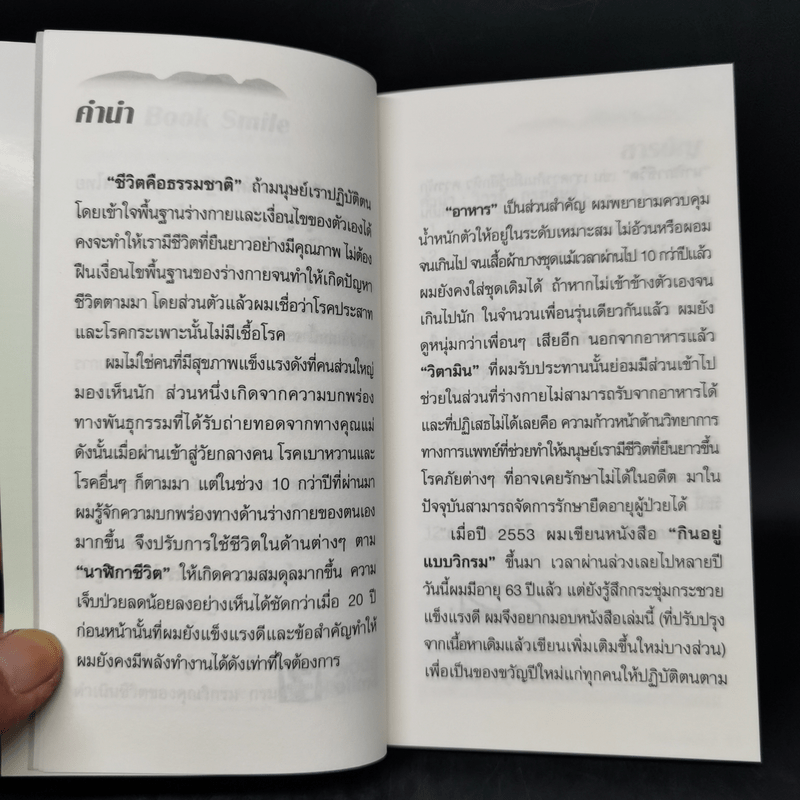 คำนำ
"ชีวิตคือธรรมชาติ" ถ้ามนุษย์เราปฏิบัติตน
โดยเข้าใจพื้นฐานร่างกายและเงื่อนไขของตัวเองได้
คงจะทำให้เรามีชีวิตที่ยืนยาวอย่างมีคุณภาพ ไม่ต้อง
ฝืนเงื่อนไขพื้นฐานของร่างกายจนทำให้เกิดปัญหา
ชีวิตตามมา โดยส่วนตัวแล้วผมเชื่อว่าโรคประสาท
และโรคกระเพาะนั้นไม่มีเชื้อโรค
ผมไม่ใช่คนที่มีสุขภาพแข็งแรงดังที่คนส่วนใหญ่
มองเห็นนัก ส่วนหนึ่งเกิดจากความบกพร่อง
ทางพันธุกรรมที่ได้รับถ่ายทอดจากทางคุณแม่
ดังนั้นเมื่อผ่านเข้าสู่วัยกลางคน โรคเบาหวานและ
โรคอื่นๆ ก็ตามมา แต่ในช่วง 10 กว่าปีที่ผ่านมา
ผมรู้จักความบกพร่องทางด้านร่างกายของตนเอง
มากขึ้น จึงปรับการใช้ชีวิตในด้านต่างๆ ตาม
"นาฬิกาชีวิต" ให้เกิดความสมดุลมากขึ้น ความ
เจ็บป่วยลดน้อยลงอย่างเห็นได้ชัดกว่าเมื่อ 20 ปี
ก่อนหน้านั้นที่ผมยังแข็งแรงดีและข้อสำคัญทำให้
ผมยังคงมีพลังทำงานได้ดังเท่าที่ใจต้องการ
"อาหาร" เป็นส่วนสำคัญ ผมพยายามควบคุม
น้ำหนักตัวให้อยู่ในระดับเหมาะสม ไม่อ้วนหรือผอม
จนเกินไป จนเสื้อผ้าบางชุดแม้เวลาผ่านไป 10 กว่าปีแล้ว
ผมยังคงใส่ชุดเดิมได้ ถ้าหากไม่เข้าข้างตัวเองจน
เกินไปนัก ในจำนวนเพื่อนรุ่นเดียวกันแล้ว ผมยัง
ดูหนุ่มกว่าเพื่อนๆ เสียอีก นอกจากอาหารแล้ว
"วิตามิน" ที่ผมรับประทานนั้นย่อมมีส่วนเข้าไป
ช่วยในส่วนที่ร่างกายไม่สามารถรับจากอาหารได้
และที่ปฏิเสธไม่ได้เลยคือ ความก้าวหน้าด้านวิทยาการ
ทางการแพทย์ที่ช่วยทำให้มนุษย์เรามีชีวิตที่ยืนยาวขึ้น
โรคภัยต่างๆ ที่อาจเคยรักษาไม่ได้ในอดีต มาใน
ปัจจุบันสามารถจัดการรักษายืดอายุผู้ป่วยได้
เมื่อปี 2553 ผมเขียนหนังสือ "กินอยู่
แบบวิกรม" ขึ้นมา เวลาผ่านล่วงเลยไปหลายปี
วันนี้ผมมีอายุ 63 ปีแล้ว แต่ยังรู้สึกกระชุ่มกระชวย
แข็งแรงดี ผมจึงอยากมอบหนังสือเล่มนี้ (ที่ปรับปรุง
จากเนื้อหาเดิมแล้วเขียนเพิ่มเติมขึ้นใหม่บางส่วน)
เพื่อเป็นของขวัญปีใหม่แก่ทุกคนให้ปฏิบัติตนตาม